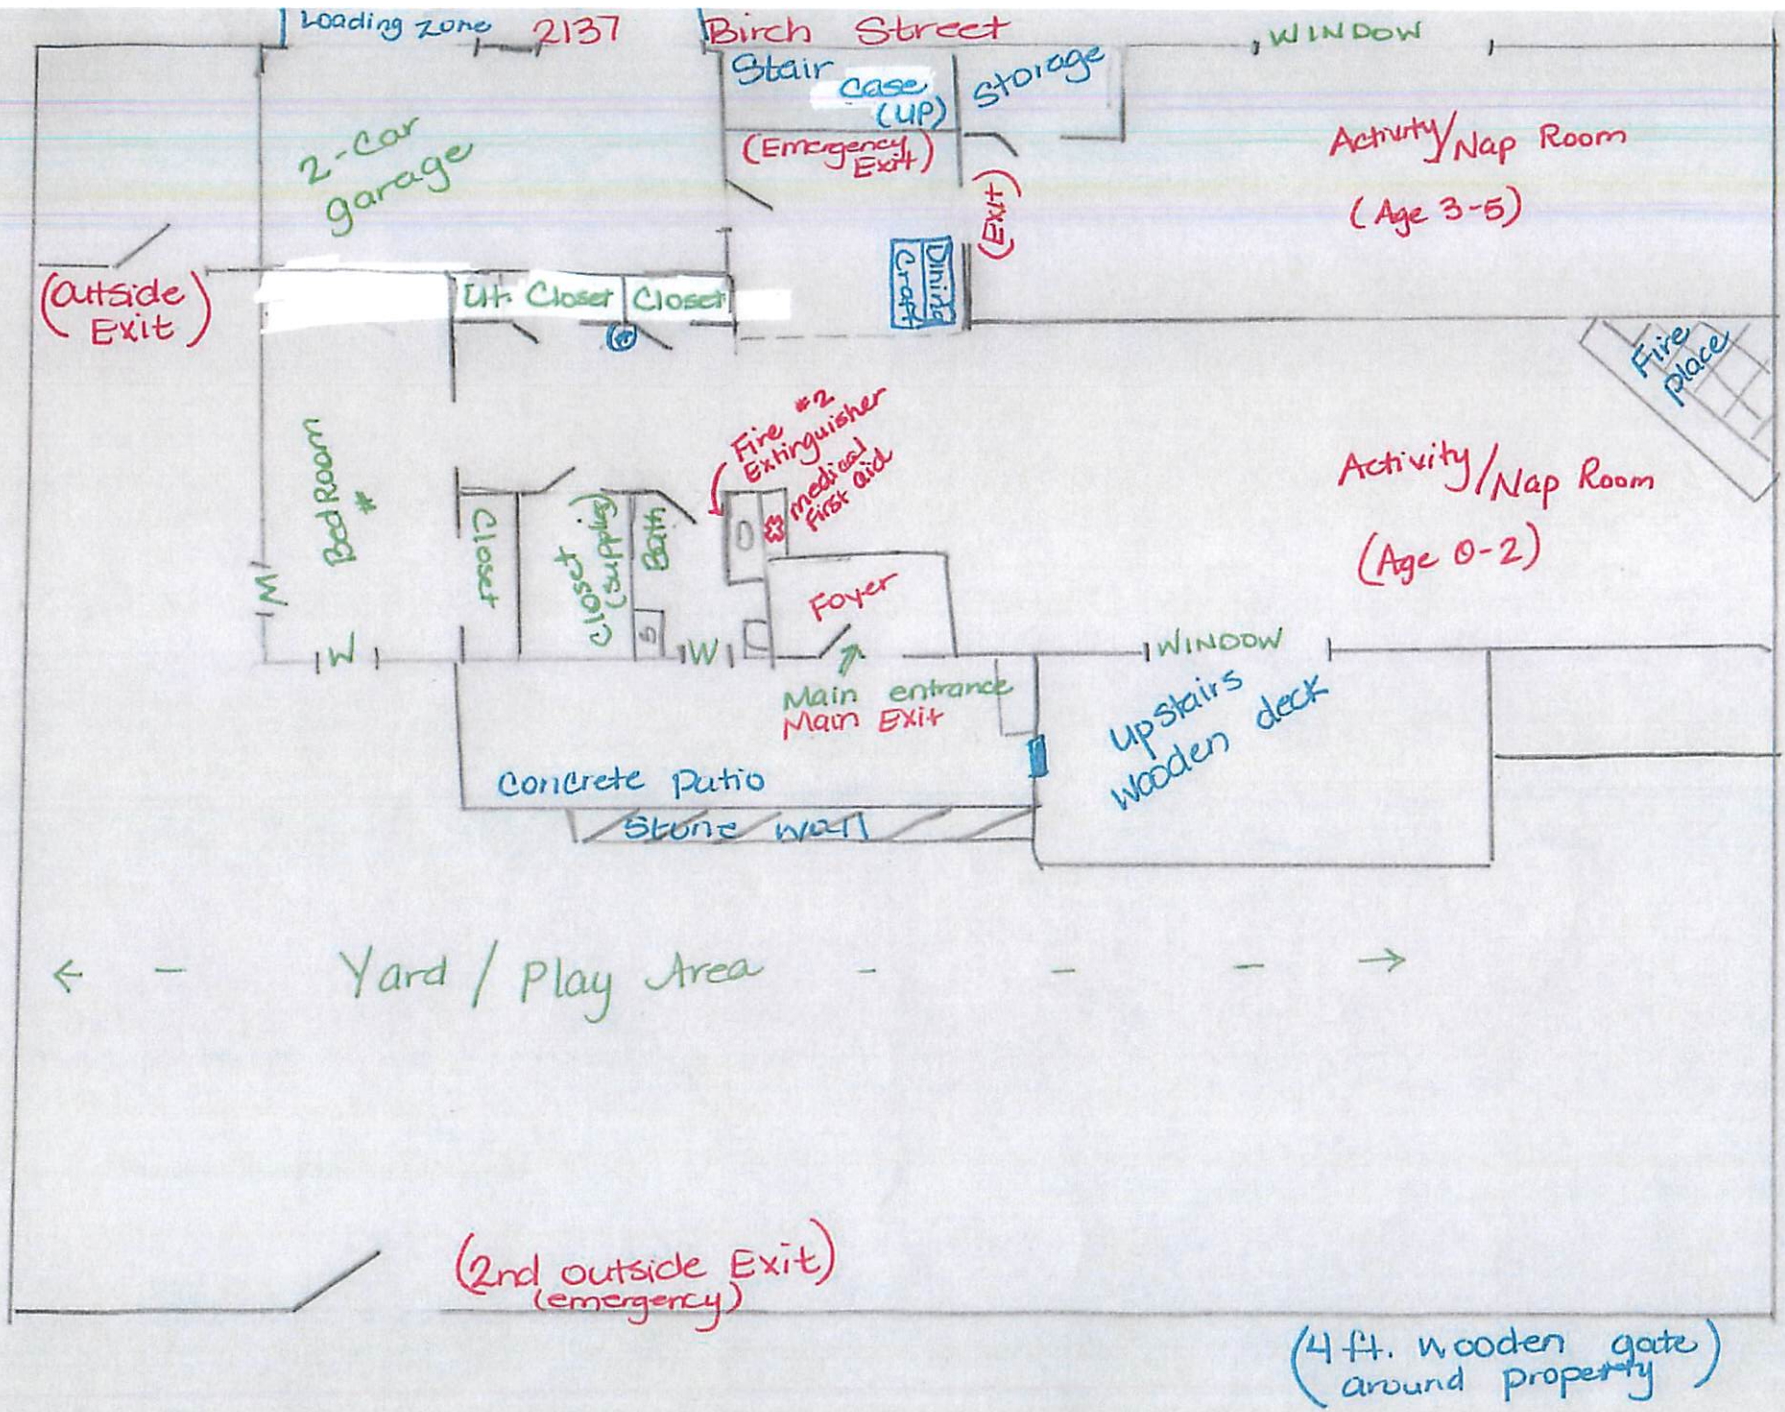 Loading zone
2137 Birch Street
WINDOW
Stair
Case
(UP)
Storage
(Emergency
Exit)
2-Car
garage
Activity/Nap Room
(Age 3-5)
(Exit)
Dining
Craft
(Outside
Exit)
Ut. Closet
Closet
Fire
place
Fire #2
Extinguisher
medical
First aid
Bed Room
#
Closet
Closet
(supplies)
Bath
Activity/Nap Room
(Age 0-2)
Foyer
W
W
W
WINDOW
Main entrance
Main Exit
upstairs
wooden deck
Concrete Patio
Stone wall
Yard / Play Area
(2nd outside Exit)
(emergency)
(4 ft. wooden gate
around property)